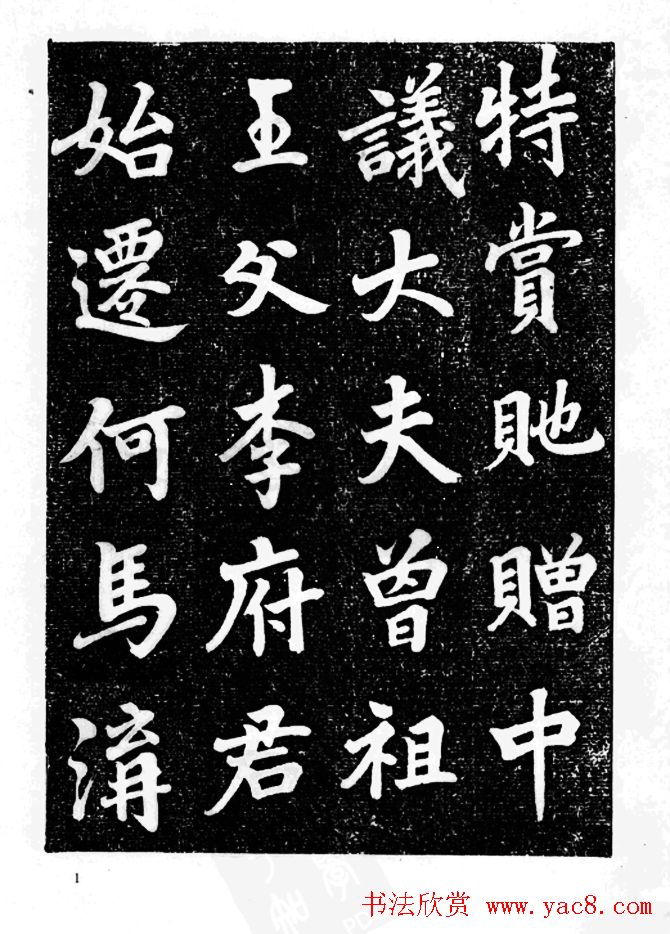 特賞貤贈中
議大夫曾祖
王父李府君
始遷何馬溝
1
书法欣赏 www.yac8.com